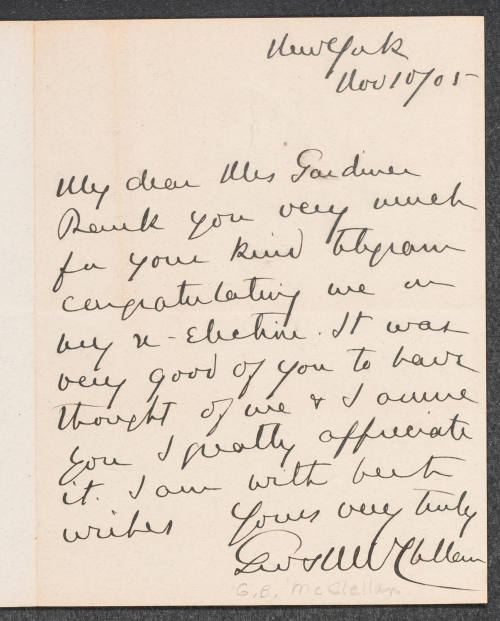 New York
Nov 10/05
My dear Mrs Gardiner
Thank you very much
for your kind telegram
congratulating me on
my re-election. It was
very good of you to have
thought of me & I assure
you I greatly appreciate
it. I am with best
wishes Yours very truly
Geo B McClellan
G. B. McClellan